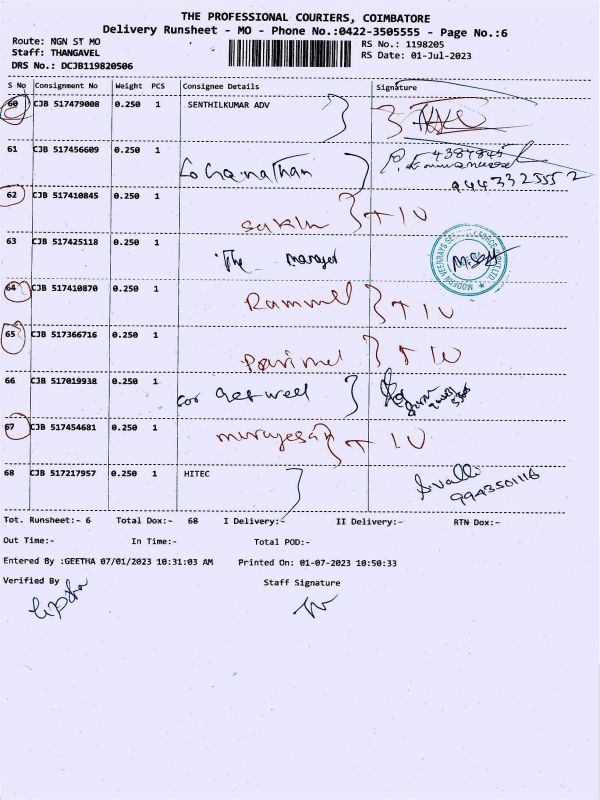 THE PROFESSIONAL COURIERS, COIMBATORE
Delivery Runsheet - MO - Phone No.:0422-3505555 - Page No.:6
Route: NGN ST MO
RS No.: 1198205
Staff: THANGAVEL
RS Date: 01-Jul-2023
DRS No.: DCJB119820506
S No Consignment No Weight PCS Consignee Details Signature
60 CJB 517479008 0.250 1 SENTHILKUMAR ADV
61 CJB 517456609 0.250 1 Lohanathan
9443325552
62 CJB 517410845 0.250 1
63 CJB 517425118 0.250 1 The manager
64 CJB 517410870 0.250 1
65 CJB 517366716 0.250 1
66 CJB 517019938 0.250 1 Get well
67 CJB 517454681 0.250 1 murugesan
68 CJB 517217957 0.250 1 HITEC Svalli
9943501116
Tot. Runsheet:- 6 Total Dox:- 68 I Delivery:- II Delivery:- RTN Dox:-
Out Time:- In Time:- Total POD:-
Entered By :GEETHA 07/01/2023 10:31:03 AM Printed On: 01-07-2023 10:50:33
Verified By Staff Signature